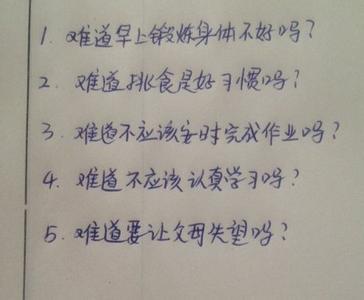 1. 难道早上锻炼身体不好吗?
2. 难道挑食是好习惯吗?
3. 难道不应该按时完成作业吗?
4. 难道不应该认真学习吗?
5. 难道要让父母失望吗?